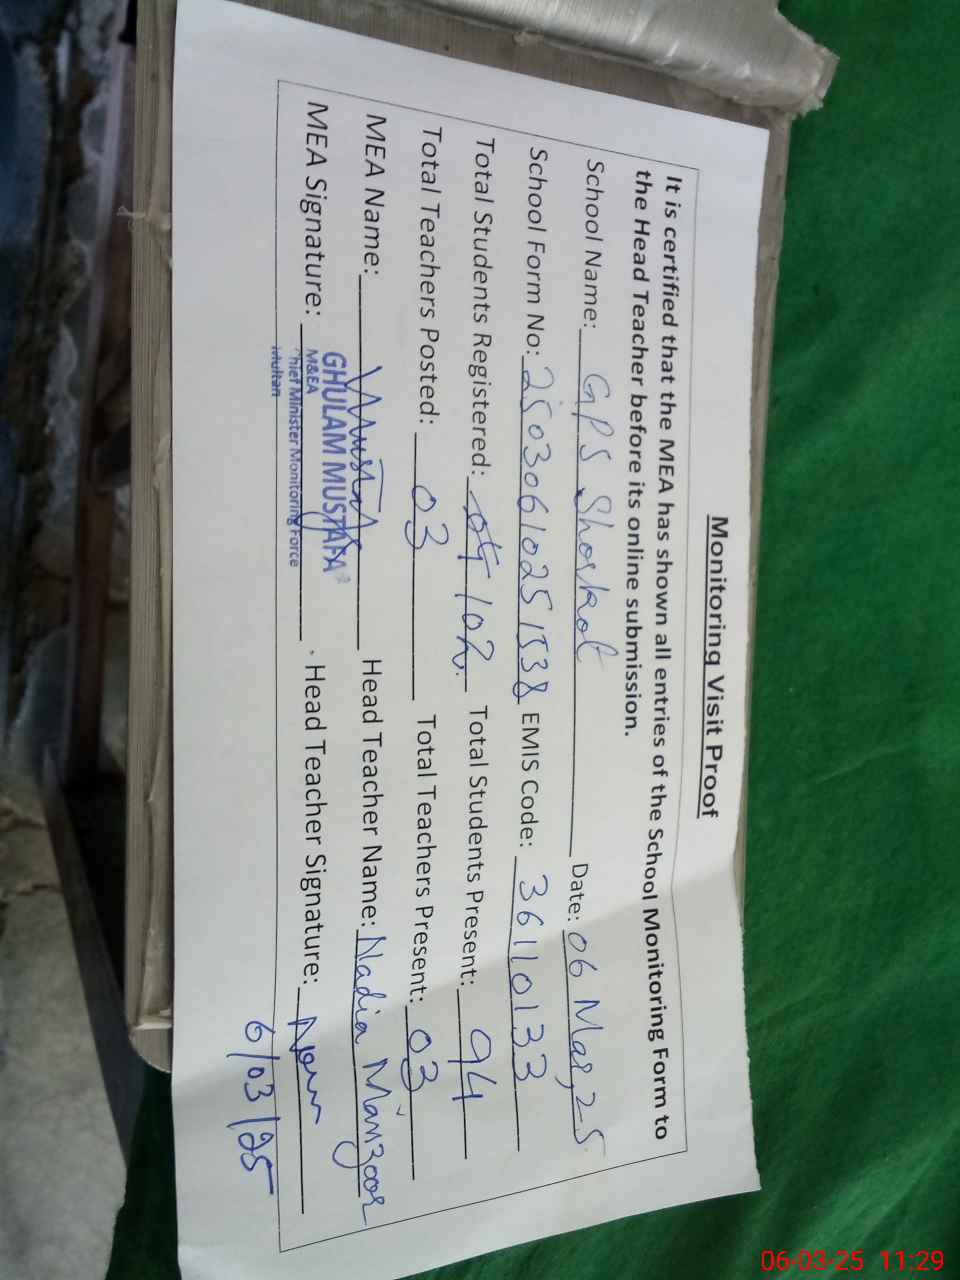 Monitoring Visit Proof
It is certified that the MEA has shown all entries of the School Monitoring Form to
the Head Teacher before its online submission.
School Name: GPS Shorkot Date: 06 Mar, 25
School Form No: 25030610251538 EMIS Code: 36110133
Total Students Registered: 102 Total Students Present: 94
Total Teachers Posted: 03 Total Teachers Present: 03
MEA Name: Mustafa Head Teacher Name: Nadia Manzoor
MEA Signature: Head Teacher Signature:
GHULAM MUSTAFA
M&EA
Chief Minister Monitoring Force
Multan
6/03/25
06-03-25 11:29